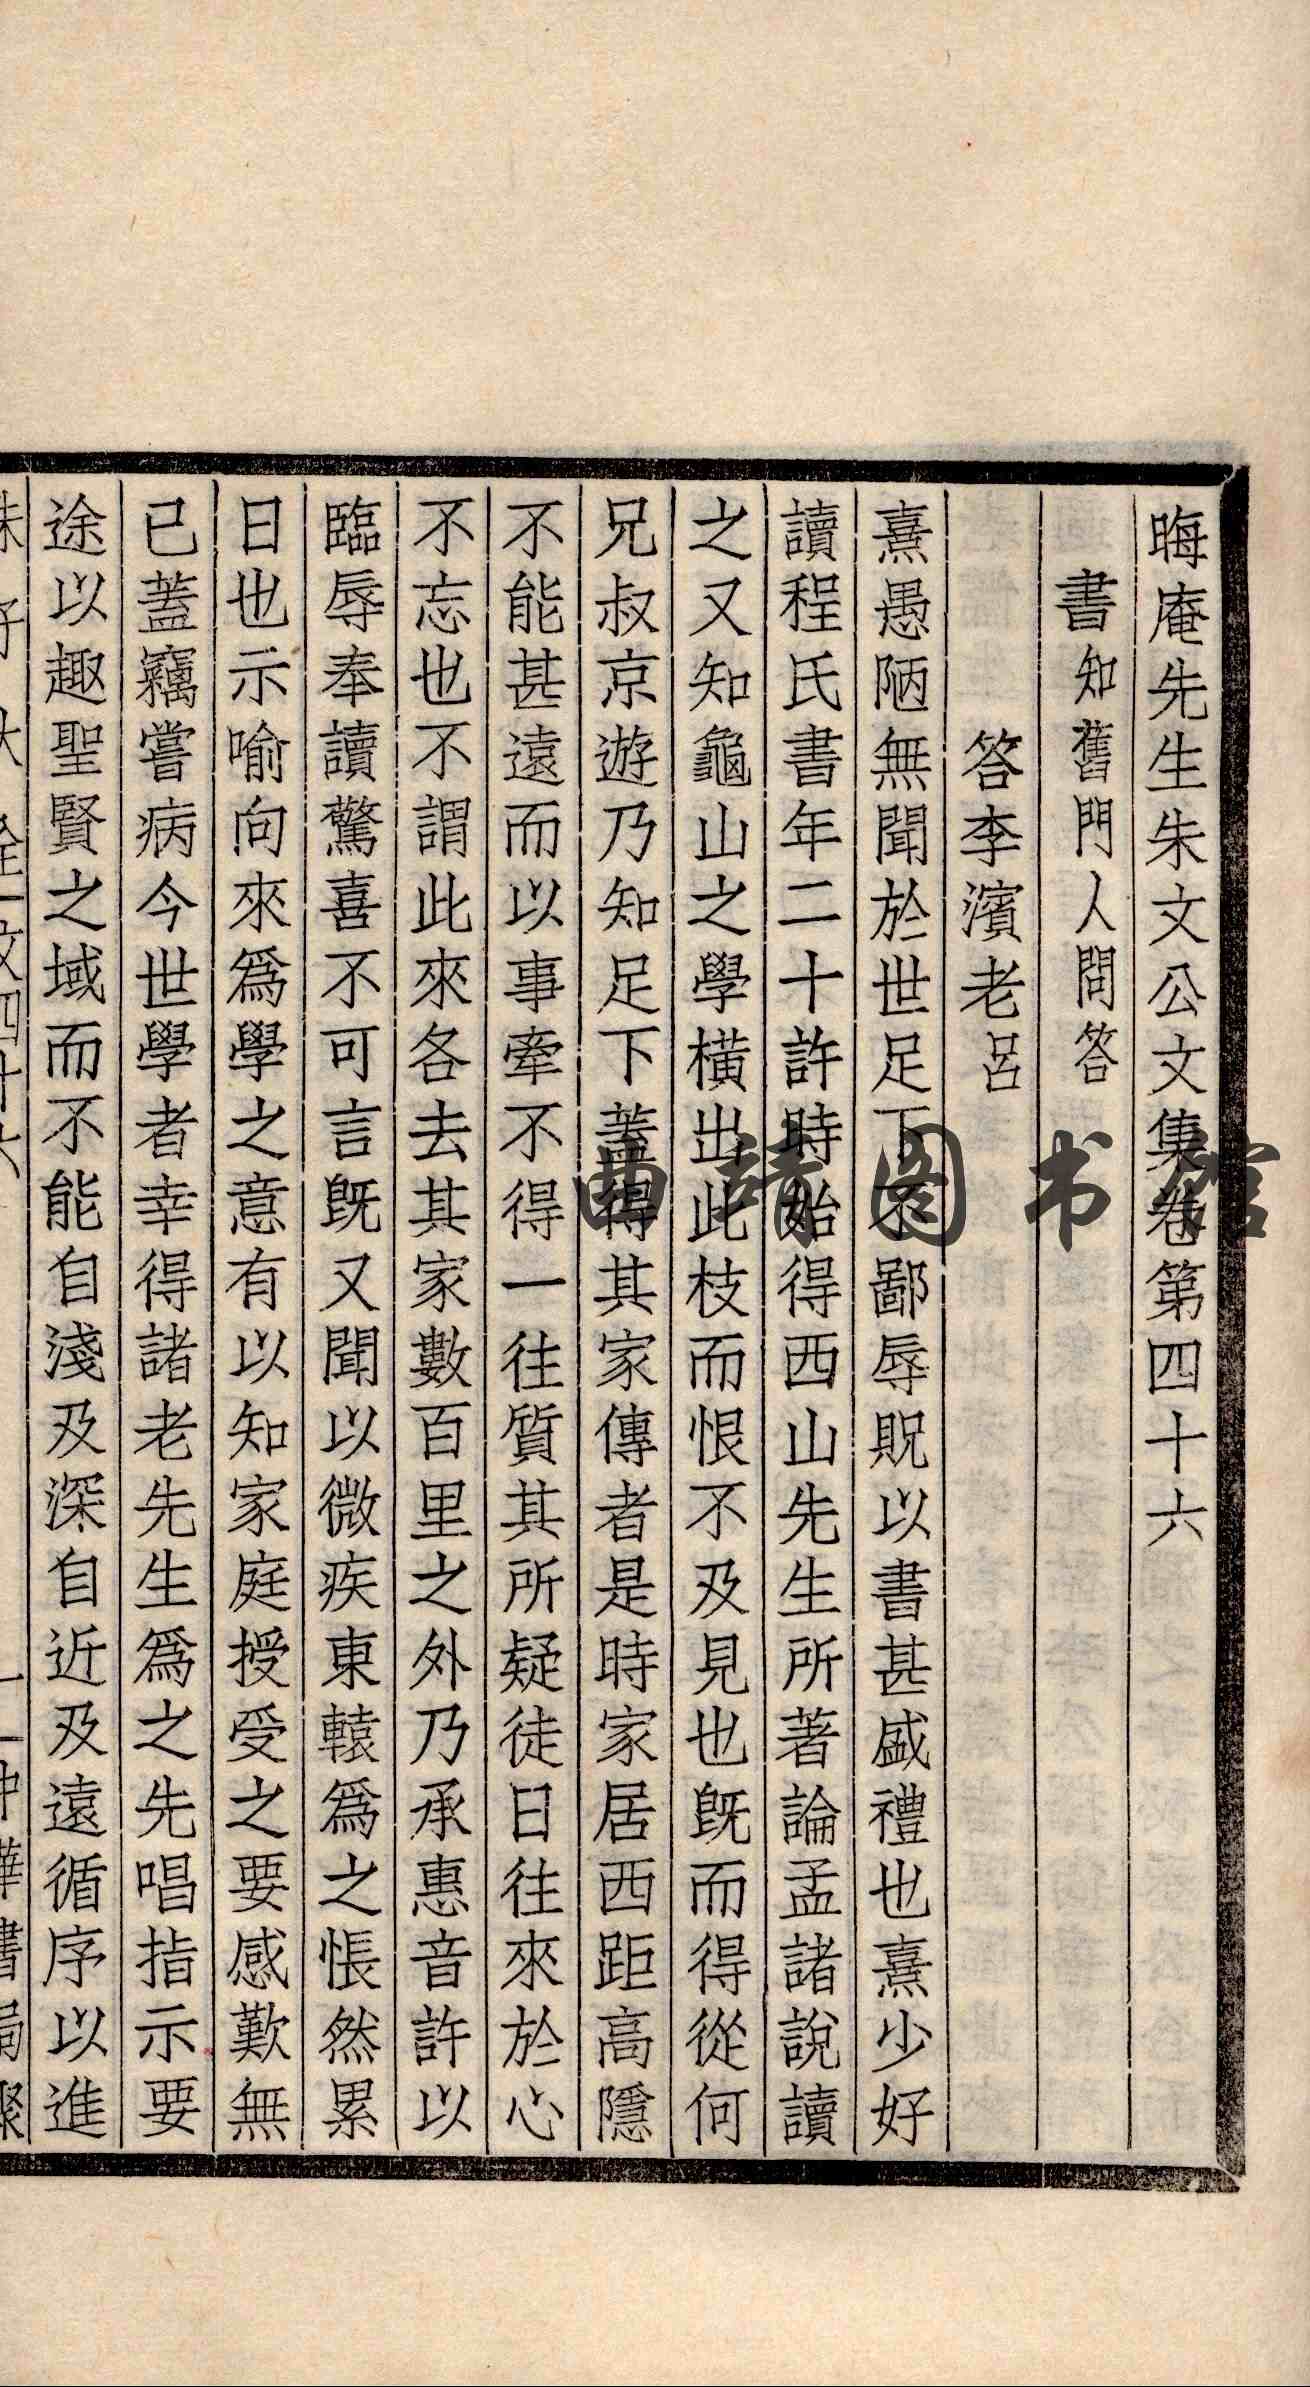 晦庵先生朱文公文集卷第四十六
書知舊門人問答
答李濱老呂
熹愚陋無聞於世足下不鄙辱貺以書甚盛禮也熹少好
讀程氏書年二十許時始得西山先生所著論孟諸說讀
之又知龜山之學橫出此枝而恨不及見也旣而得從何
兄叔京遊乃知足下蓋得其家傳者是時家居西距高隱
不能甚遠而以事牽不得一往質其所疑徒日往來於心
不忘也不謂此來各去其家數百里之外乃承惠音許以
臨辱奉讀驚喜不可言旣又聞以微疾東轅爲之悵然累
日也示喻向來爲學之意有以知家庭授受之要感歎無
已蓋竊嘗病今世學者幸得諸老先生爲之先唱指示要
途以趣聖賢之域而不能自淺及深自近及遠循序以進
曲靖图书馆